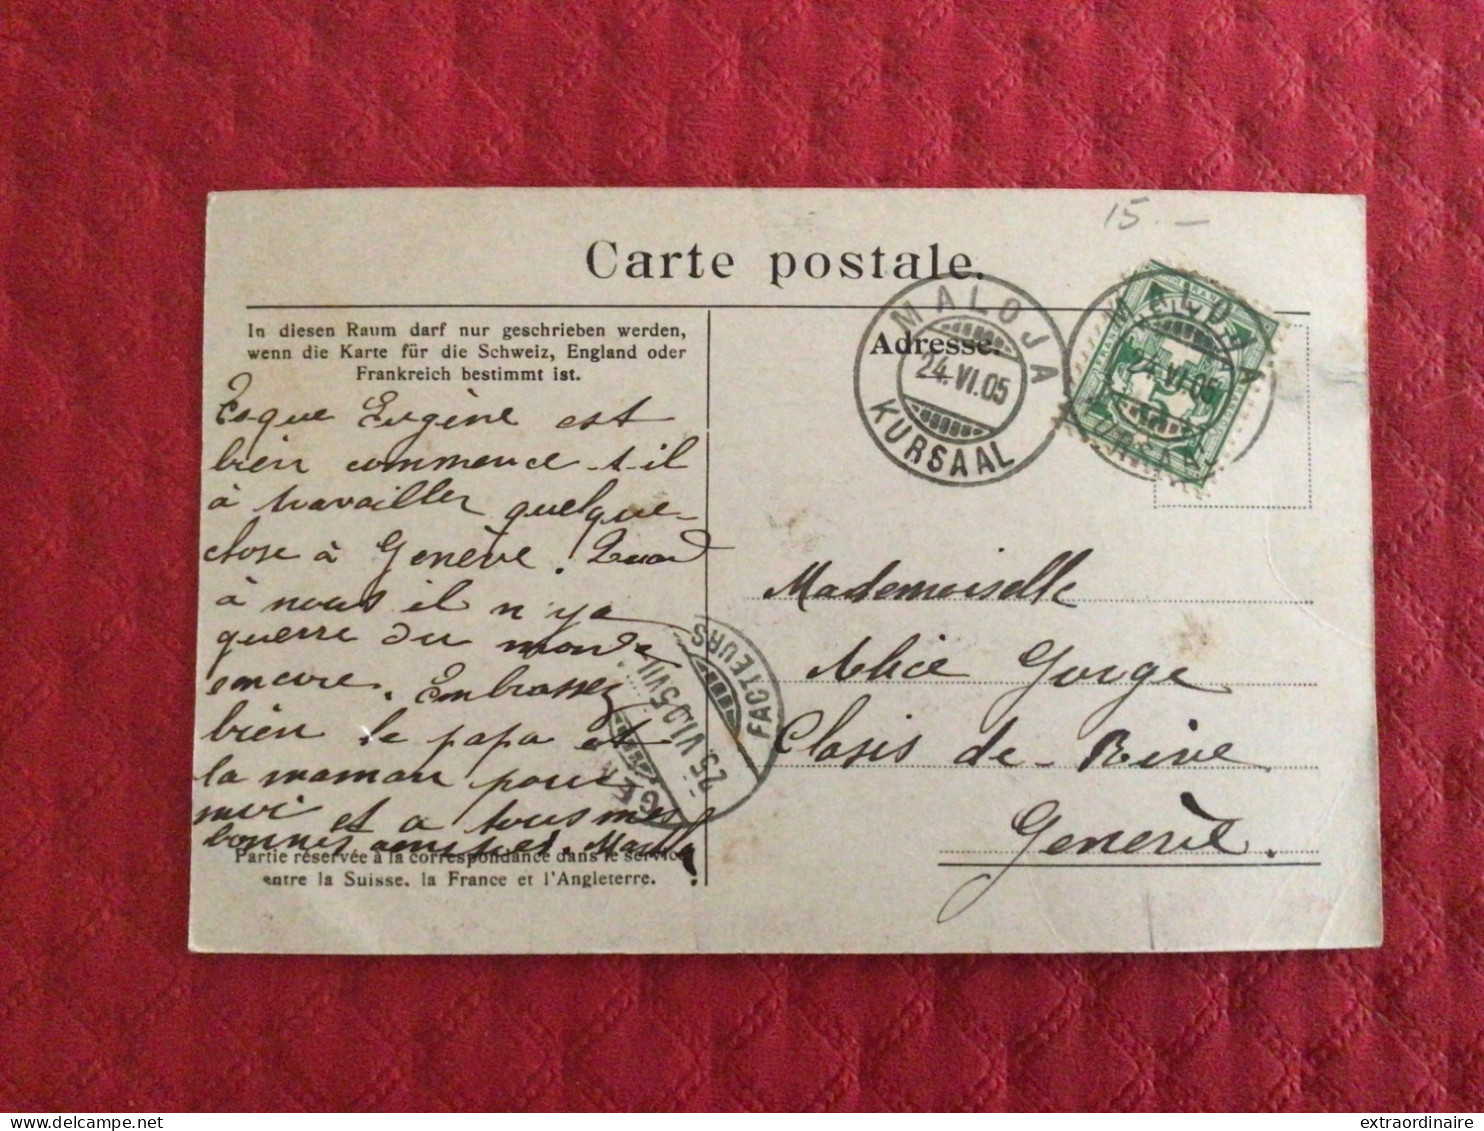 15.—
Carte postale.
In diesen Raum darf nur geschrieben werden,
wenn die Karte für die Schweiz, England oder
Frankreich bestimmt ist.
Esque Eugène est
bien commence-t-il
à travailler quelque-
chose à Genève. Quand
à nous il n'y a
guerre du monde
encore. Embrassez
bien le papa et
la maman pour
moi et a tous mes
bonnes amitiés.
Partie réservée à la correspondance dans le service
entre la Suisse, la France et l'Angleterre.
Adresse.
MALOJA
24.VI.05
KURSAAL
MALOJA
24.VI.05
KURSAAL
FACTEURS
25.VI.05 VII
GE
Mademoiselle
Alice Gorge
Closis de-Rive
Genève.
extraordinaire